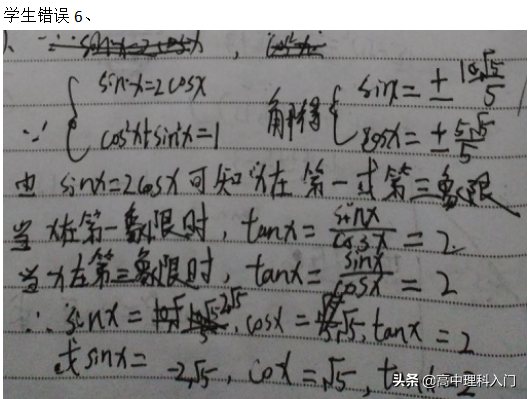 学生错误 6、
sinx=2cosx
∵ { cos²x+sin²x=1 解得 { sinx=± 10√5/5
cosx=± 5√5/5
由 sinx=2cosx 可知 x在 第一或第三象限
当 x在第一象限时, tanx= sinx/cosx = 2.
当 x在第三象限时, tanx= sinx/cosx = 2
∴ sinx= 2√5, cosx= √5, tanx=2
或 sinx= -2√5, cosx= √5,
头条 @高中理科入门